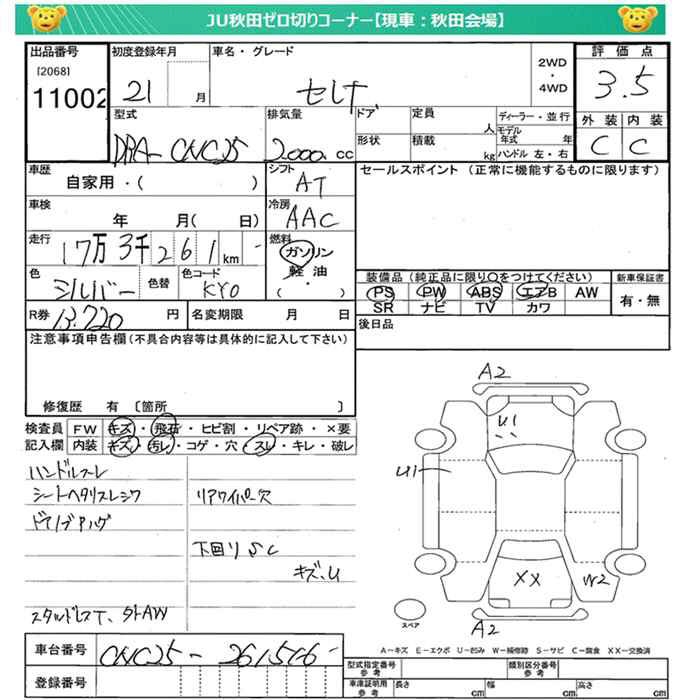 JU秋田ゼロ切りコーナー【現車：秋田会場】
出品番号
[2068]
11002
初度登録年月
21 月
車名・グレード
セレナ
2WD
・
4WD
評価点
3.5
外装 内装
C C
型式
DBA-CNC25
排気量
2000 cc
ドア
形状
定員 人
積載 kg
ディーラー・並行
モデル年式 年
ハンドル 左・右
車歴
自家用・( )
シフト
AT
セールスポイント (正常に機能するものに限ります)
車検
年 月( 日)
冷房
AAC
走行
17万3千261km
燃料
ガソリン
軽油
( )
色
シルバー
色替
色コード
KY0
装備品 (純正品に限り○をつけてください)
PS PW ABS エアB AW
SR ナビ TV カワ
新車保証書
有・無
R券 13,720 円
名変期限 月 日
後日品
注意事項申告欄(不具合内容等は具体的に記入して下さい)
修復歴 有 〔箇所 〕
検査員
記入欄
FW キズ・飛石・ヒビ割・リペア跡・×要
内装 キズ・汚レ・コゲ・穴・スレ・キレ・破レ
ハンドルスレ
シートヘタリスレシワ
リアワイパー穴
下回りSC
キズ、U
スタッドレスT、外AW
A2
U1
U1
XX
W2
A2
スペア
A-キズ E-エクボ U-凹み W-補修跡 S-サビ C-腐食 XX-交換済
車台番号
CNC25-261516
登録番号
型式指定番号
参考
類別区分番号
参考
車庫証明用
参考
長さ cm
幅 cm
高さ cm